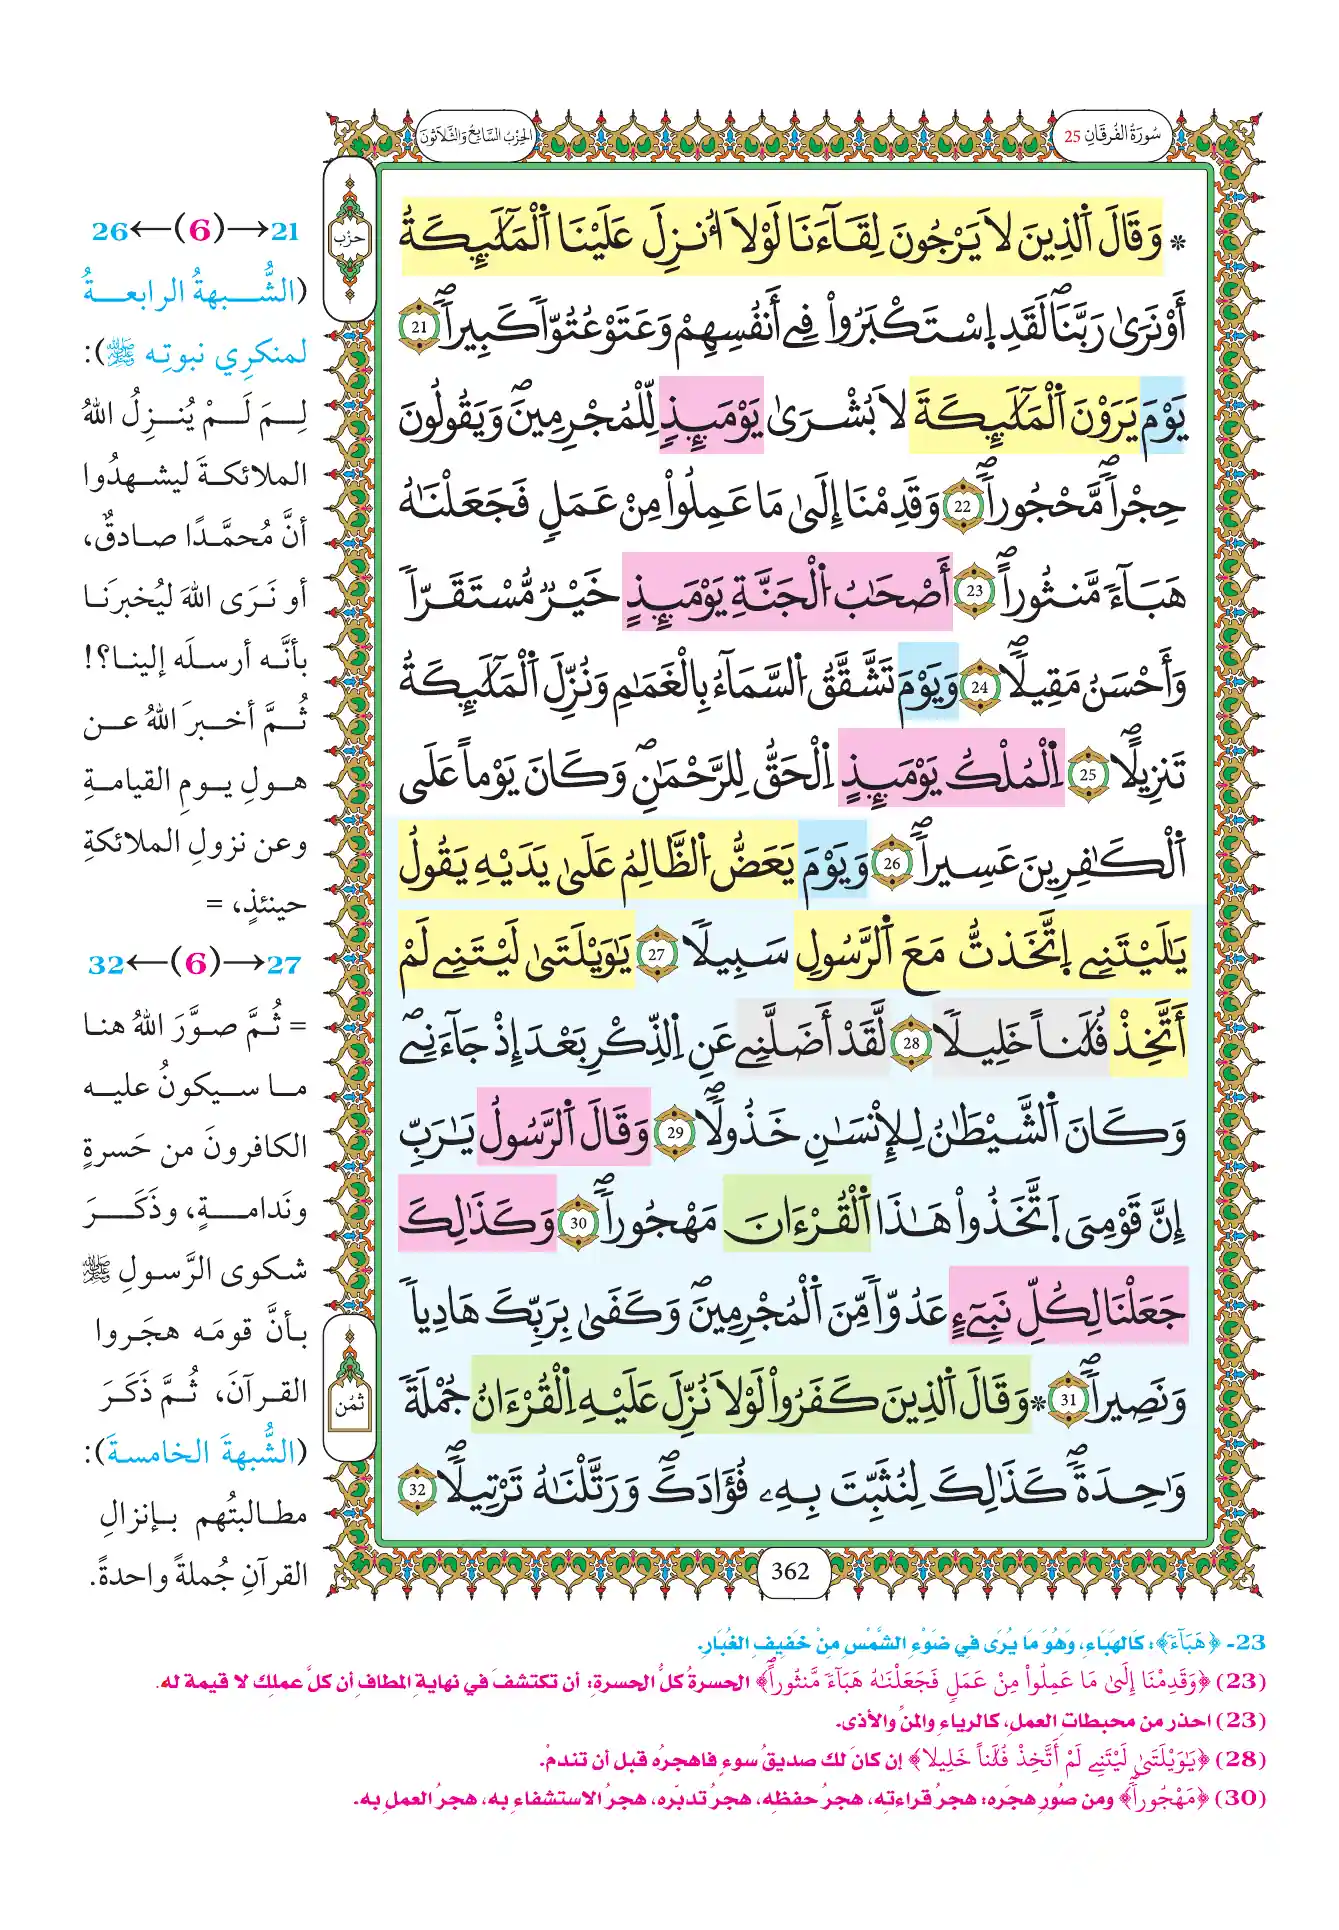 سُورَةُ الفُرقَانِ 25
الحِزْبُ السَّابِعُ وَالثَّلَاثُونَ
* وَقَالَ اَ۬لذِينَ لَا يَرْجُونَ لِقَآءَنَا لَوْلَآ أُنزِلَ عَلَيْنَا اَ۬لْمَلَٰٓئِكَةُ
أَوْ نَر۪ىٰ رَبَّنَاۖ لَقَدِ اِ۪سْتَكْبَرُواْ فِےٓ أَنفُسِهِمْ وَعَتَوْ عُتُوّاٗ كَبِيراٗۖ 21
يَوْمَ يَرَوْنَ اَ۬لْمَلَٰٓئِكَةَ لَا بُشْر۪ىٰ يَوْمَئِذٖ لِّلْمُجْرِمِينَۖ وَيَقُولُونَ
حِجْراٗ مَّحْجُوراٗۖ 22 وَقَدِمْنَآ إِلَىٰ مَا عَمِلُواْ مِنْ عَمَلٖ فَجَعَلْنَٰهُ
هَبَآءٗ مَّنثُوراًۖ 23 اَصْحَٰبُ اُ۬لْجَنَّةِ يَوْمَئِذٍ خَيْرٞ مُّسْتَقَرّاٗ
وَأَحْسَنُ مَقِيلاٗۖ 24 وَيَوْمَ تَشَّقَّقُ اُ۬لسَّمَآءُ بِالْغَمَٰمِ وَنُزِّلَ اَ۬لْمَلَٰٓئِكَةُ
تَنزِيلاًۖ 25 اِ۬لْمُلْكُ يَوْمَئِذٍ اِ۬لْحَقُّ لِلرَّحْمَٰنِۖ وَكَانَ يَوْماً عَلَى
اَ۬لْكَٰفِرِينَ عَسِيراٗۖ 26 وَيَوْمَ يَعَضُّ اُ۬لظَّالِمُ عَلَىٰ يَدَيْهِ يَقُولُ
يَٰلَيْتَنِے اِ۪تَّخَذتُّ مَعَ اَ۬لرَّسُولِ سَبِيلاٗ 27 يَٰوَيْلَتَىٰ لَيْتَنِے لَمَ
اَتَّخِذْ فُلَٰناً خَلِيلاٗ 28 لَّقَدَ اَضَلَّنِے عَنِ اِ۬لذِّكْرِ بَعْدَ إِذْ جَآءَنِےۖ
وَكَانَ اَ۬لشَّيْطَٰنُ لِلْإِنسَٰنِ خَذُولاٗۖ 29 وَقَالَ اَ۬لرَّسُولُ يَٰرَبِّ
إِنَّ قَوْمِيَ اَ۪تَّخَذُواْ هَٰذَا اَ۬لْقُرْءَانَ مَهْجُوراٗۖ 30 وَكَذَٰلِكَ
جَعَلْنَا لِكُلِّ نَبِيٓءٍ عَدُوّاٗ مِّنَ اَ۬لْمُجْرِمِينَۖ وَكَفَىٰ بِرَبِّكَ هَادِياٗ
وَنَصِيراٗۖ 31 * وَقَالَ اَ۬لذِينَ كَفَرُواْ لَوْلَا نُزِّلَ عَلَيْهِ اِ۬لْقُرْءَانُ جُمْلَةٗ
وَٰحِدَةٗۖ كَذَٰلِكَ لِنُثَبِّتَ بِهِۦ فُؤَادَكَۖ وَرَتَّلْنَٰهُ تَرْتِيلاٗۖ 32
362
حزب
ثمن
26←(6)→21
(الشُّبهةُ الرابعةُ
لمنكرِي نبوتِه ﷺ):
لِمَ لَمْ يُنزِلُ اللهُ
الملائكةَ ليشهدُوا
أنَّ مُحمَّدًا صادقٌ،
أو نَرَى اللهَ ليُخبرَنَا
بأنَّه أرسلَه إلينا؟!
ثُمَّ أخبرَ اللهُ عن
هولِ يومِ القيامةِ
وعن نزولِ الملائكةِ
حينئذٍ، =
32←(6)→27
= ثُمَّ صوَّرَ اللهُ هنا
ما سيكونُ عليه
الكافرونَ من حَسرةٍ
ونَدامةٍ، وذَكَرَ
شكوى الرَّسولِ ﷺ
بأنَّ قومَه هجَروا
القرآنَ، ثُمَّ ذَكَرَ
(الشُّبهةَ الخامسةَ):
مطالبتُهم بإنزالِ
القرآنِ جُملةً واحدةً.
23- ﴿هَبَآءٗ﴾: كَالهَبَاءِ، وَهُوَ مَا يُرَى فِي ضَوْءِ الشَّمْسِ مِنْ خَفِيفِ الغُبَارِ.
(23) ﴿وَقَدِمْنَآ إِلَىٰ مَا عَمِلُواْ مِنْ عَمَلٖ فَجَعَلْنَٰهُ هَبَآءٗ مَّنثُوراًۖ﴾ الحسرةُ كلُّ الحسرةِ: أن تكتشفَ في نهايةِ المطافِ أن كلَّ عملِك لا قيمة له.
(23) احذر من محبطاتِ العملِ، كالرياءِ والمنِّ والأذى.
(28) ﴿يَٰوَيْلَتَىٰ لَيْتَنِے لَمَ اَتَّخِذْ فُلَٰناً خَلِيلاٗ﴾ إن كانَ لك صديقُ سوءٍ فاهجرْه قبل أن تندمْ.
(30) ﴿مَهْجُوراٗۖ﴾ ومن صُورِ هجرِه: هجرُ قراءتِه، هجرُ حفظِه، هجرُ تدبّرِه، هجرُ الاستشفاءِ به، هجرُ العملِ به.